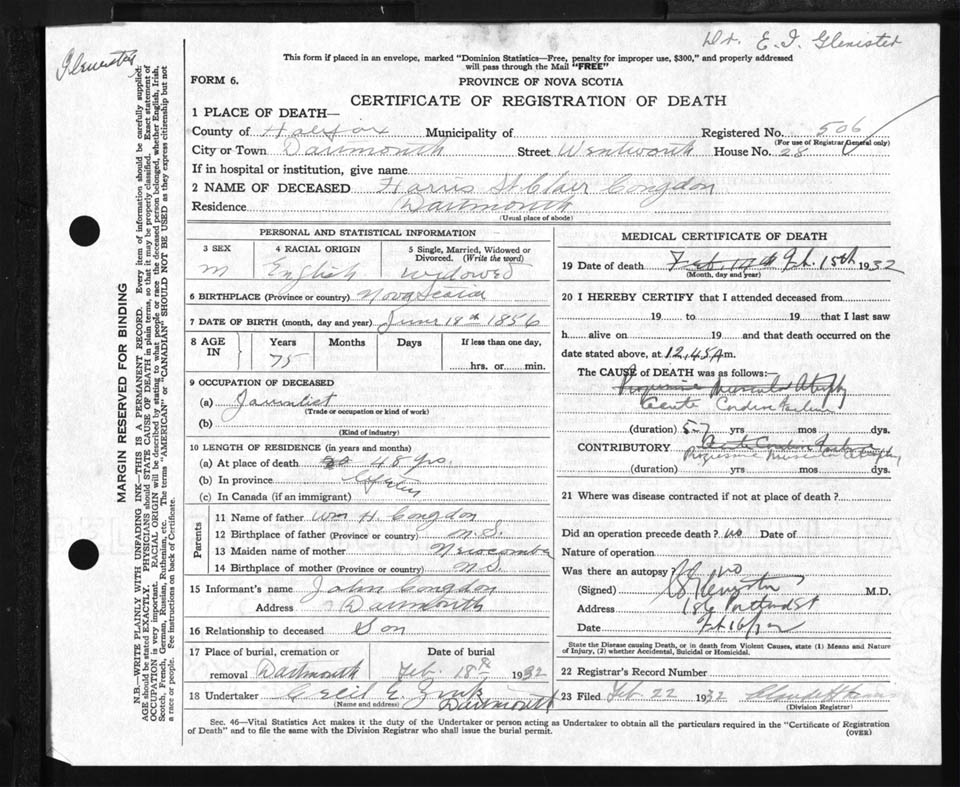 Dr. E. I. Glenister
Glenister
This form if placed in an envelope, marked "Dominion Statistics—Free, penalty for improper use, $300," and properly addressed
will pass through the Mail "FREE"
FORM 6.
PROVINCE OF NOVA SCOTIA
CERTIFICATE OF REGISTRATION OF DEATH
1 PLACE OF DEATH—
County of Halifax Municipality of Registered No. 506
(For use of Registrar General only)
City or Town Dartmouth Street Wentworth House No. 28
If in hospital or institution, give name
2 NAME OF DECEASED Harris St Clair Congdon
Residence Dartmouth
(Usual place of abode)
PERSONAL AND STATISTICAL INFORMATION
3 SEX 4 RACIAL ORIGIN 5 Single, Married, Widowed or
Divorced. (Write the word)
m English Widowed
6 BIRTHPLACE (Province or country) Nova Scotia
7 DATE OF BIRTH (month, day and year) June 18th 1856
8 AGE IN Years Months Days If less than one day,
75 hrs. or min.
9 OCCUPATION OF DECEASED
(a) Journalist
(Trade or occupation or kind of work)
(b)
(Kind of industry)
10 LENGTH OF RESIDENCE (in years and months)
(a) At place of death 48 yrs.
(b) In province Lifetime
(c) In Canada (if an immigrant)
Parents
11 Name of father Wm H. Congdon
12 Birthplace of father (Province or country) N.S.
13 Maiden name of mother Newcombe
14 Birthplace of mother (Province or country) N.S.
15 Informant's name John Congdon
Address Dartmouth
16 Relationship to deceased Son
17 Place of burial, cremation or Date of burial
removal Dartmouth Feb. 18th 1932
18 Undertaker Cecil E. Zink
(Name and address) Dartmouth
MEDICAL CERTIFICATE OF DEATH
19 Date of death Feb. 14th Feb. 15th 1932
(Month, day and year)
20 I HEREBY CERTIFY that I attended deceased from
19 to 19 that I last saw
h alive on 19 and that death occurred on the
date stated above, at 12.45 A m.
The CAUSE of DEATH was as follows:
Progressive Muscular Atrophy
Acute Cardiac Failure
(duration) 5-7 yrs mos dys.
CONTRIBUTORY Acute Cardiac Failure
Progressive Muscular Atrophy
(duration) yrs mos dys.
21 Where was disease contracted if not at place of death?
Did an operation precede death? no Date of
Nature of operation
Was there an autopsy? no
(Signed) Glenister M.D.
Address 186 Portland St
Date Feb 16/32
State the Disease causing Death, or in death from Violent Causes, state (1) Means and Nature
of Injury, (2) whether Accidental, Suicidal or Homicidal.
22 Registrar's Record Number
23 Filed Feb. 22 1932
(Division Registrar)
Sec. 46—Vital Statistics Act makes it the duty of the Undertaker or person acting as Undertaker to obtain all the particulars required in the "Certificate of Registration
of Death" and to file the same with the Division Registrar who shall issue the burial permit.
(OVER)
MARGIN RESERVED FOR BINDING
N.B.—WRITE PLAINLY WITH UNFADING INK—THIS IS A PERMANENT RECORD. Every item of information should be carefully supplied.
AGE should be stated EXACTLY. PHYSICIANS should STATE CAUSE OF DEATH in plain terms, so that it may be properly classified. Exact statement of
OCCUPATION is very important. RACIAL ORIGIN will be described by stating to what people or race the deceased person belonged, whether English, Irish,
Scotch, French, German, Russian, Ruthenian, etc. The terms "AMERICAN" or "CANADIAN" SHOULD NOT BE USED as they express citizenship but not
a race or people. See instructions on back of Certificate.